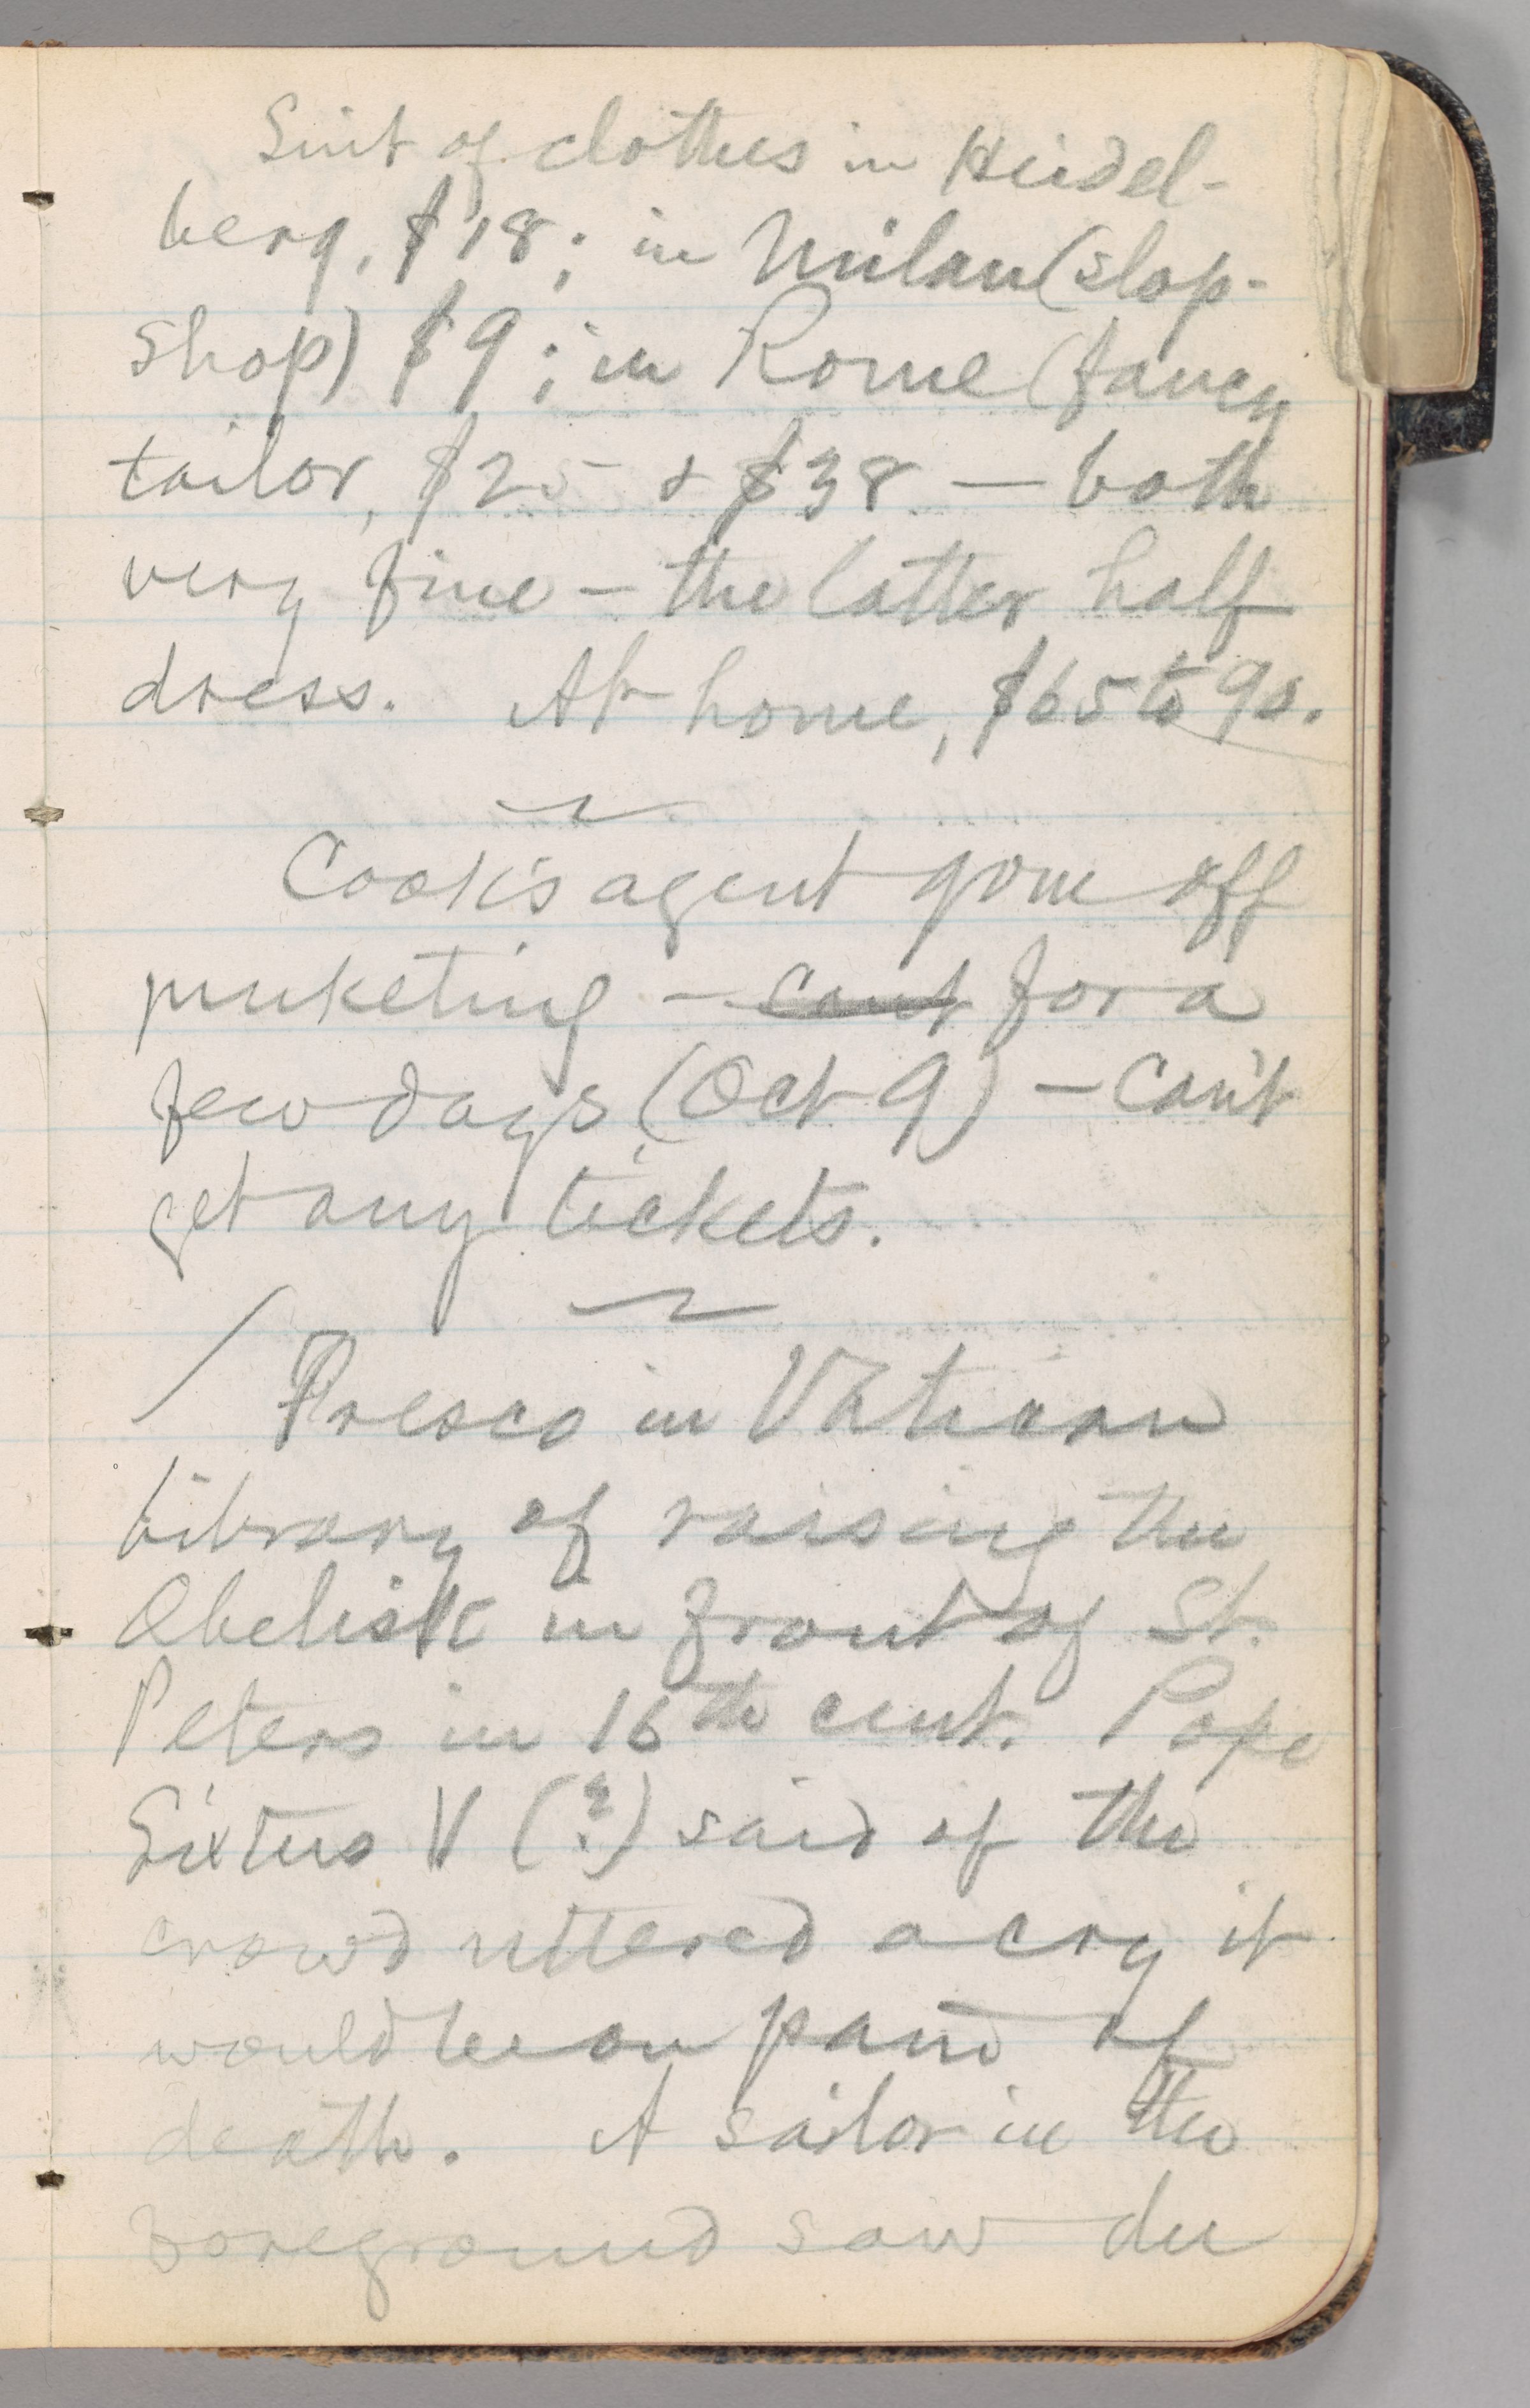 Suit of clothes in Heidel-
berg, $18; in Milan (slop-
shop) $9; in Rome (fancy
tailor, $25 & $38 — both
very fine — the latter half
dress. At home, $65 to 90.
Cook's agent gone off
junketing — can't for a
few days, (Oct 9) — Can't
get any tickets.
Fresco in Vatican
Library of raising the
Obelisk in front of St.
Peters in 16th cent. Pope
Sixtus V (?) said of the
crowd uttered a cry it
would be on pain of
death. A sailor in the
foreground saw the